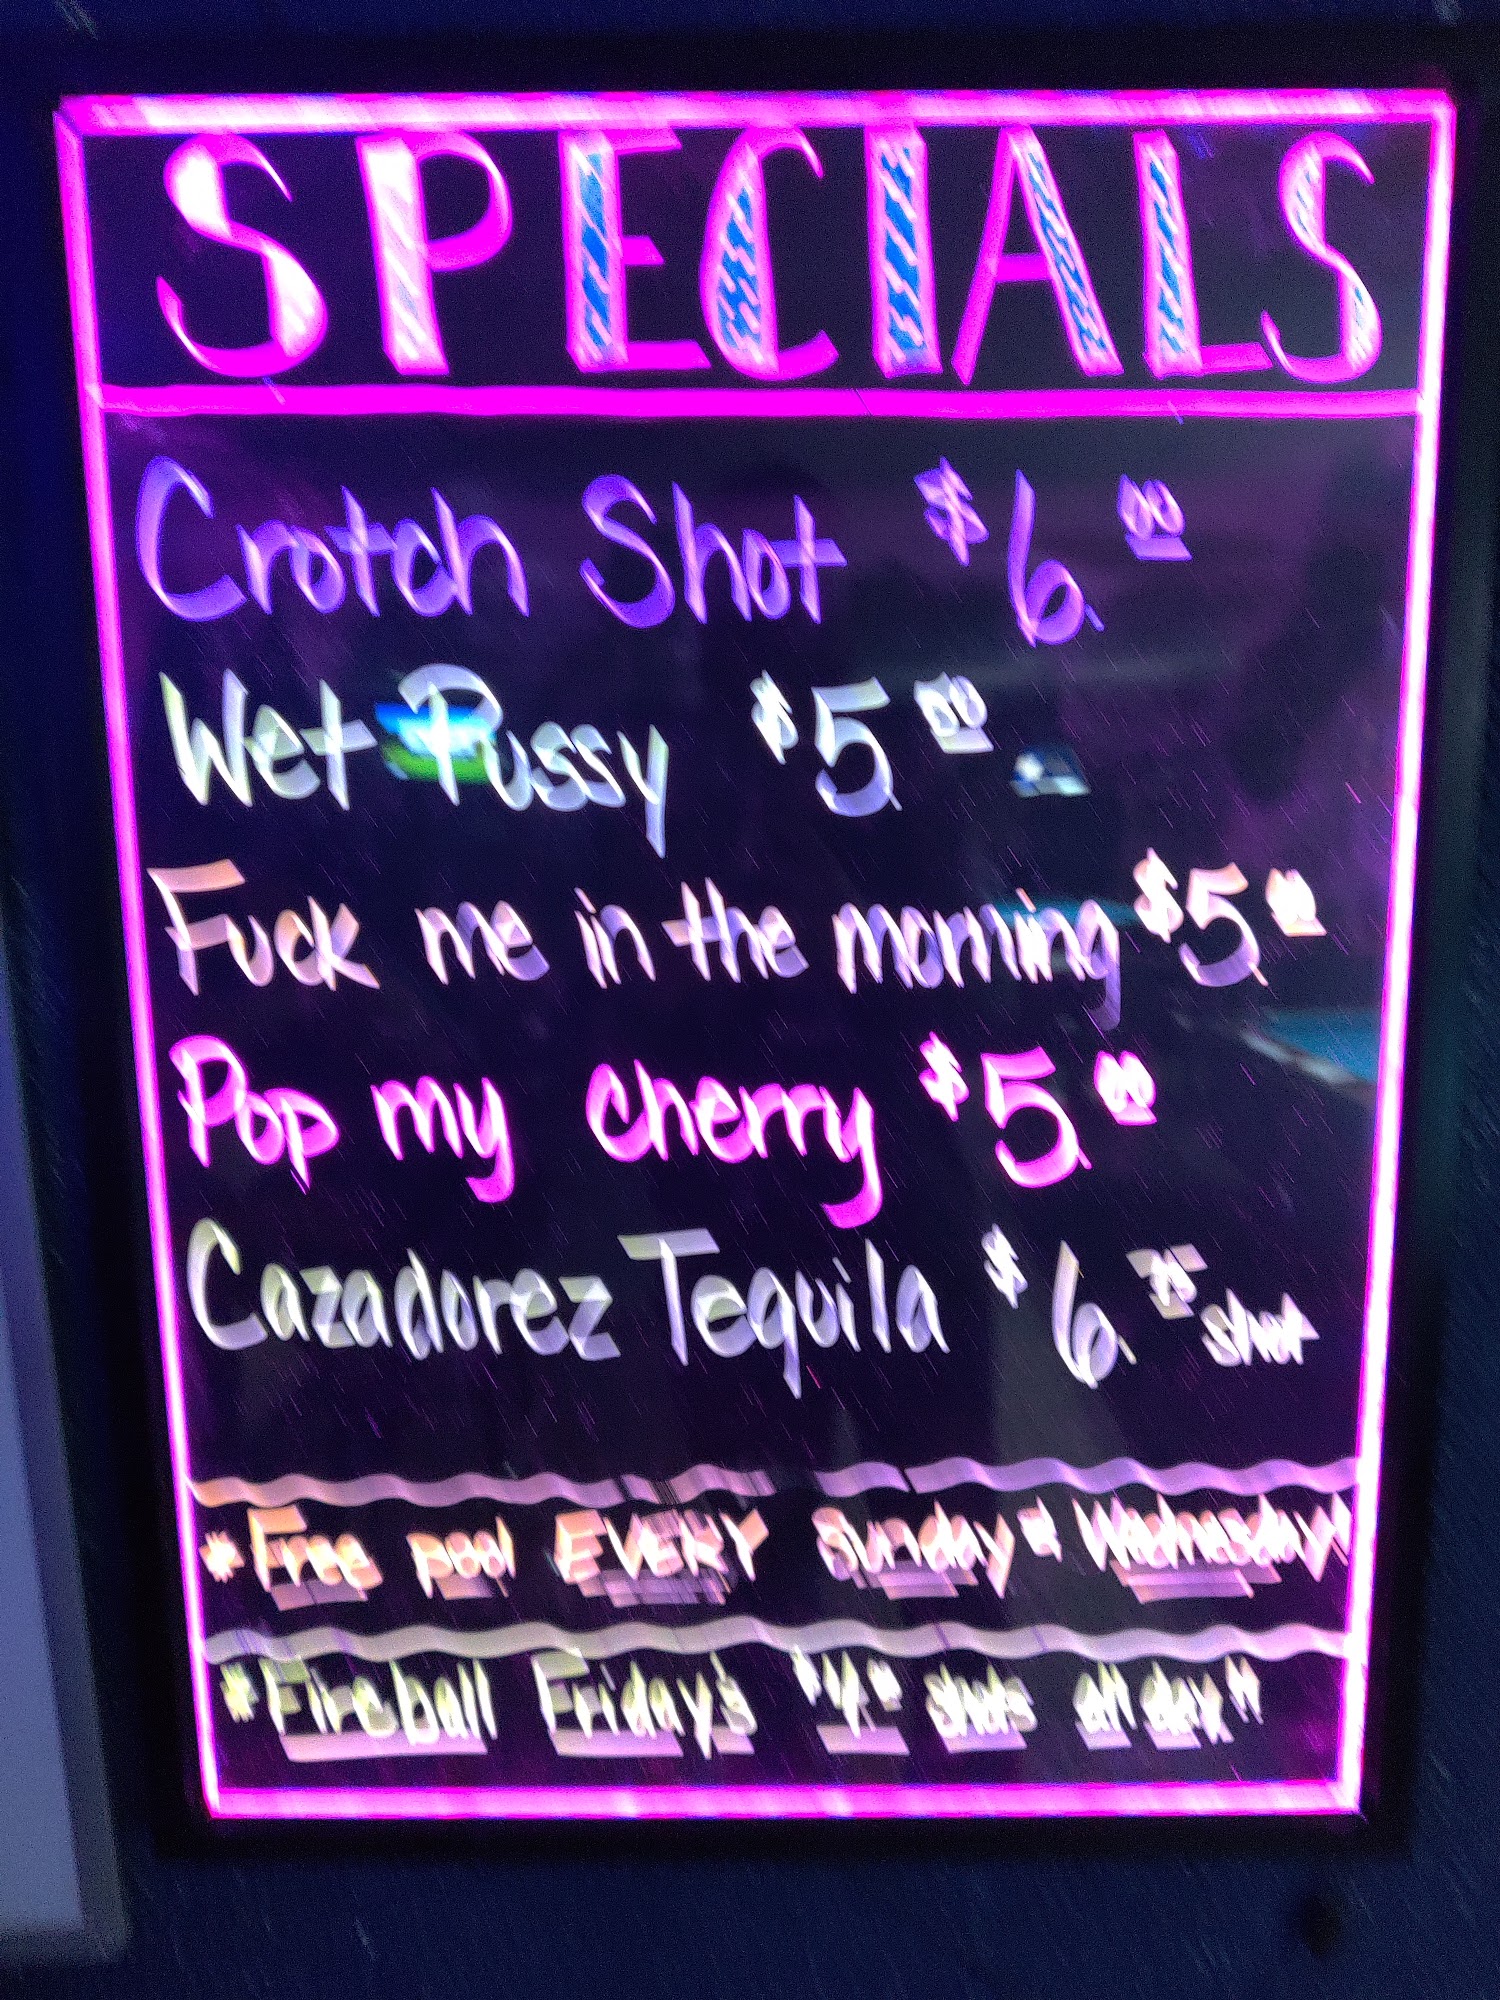 SPECIALS
Crotch Shot $6.00
Wet Pussy $5.00
Fuck me in the morning $5.00
Pop my cherry $5.00
Cazadorez Tequila $6.75 shot
*Free pool EVERY Sunday & Wednesday!
*Fireball Friday's $4.00 shots all day"